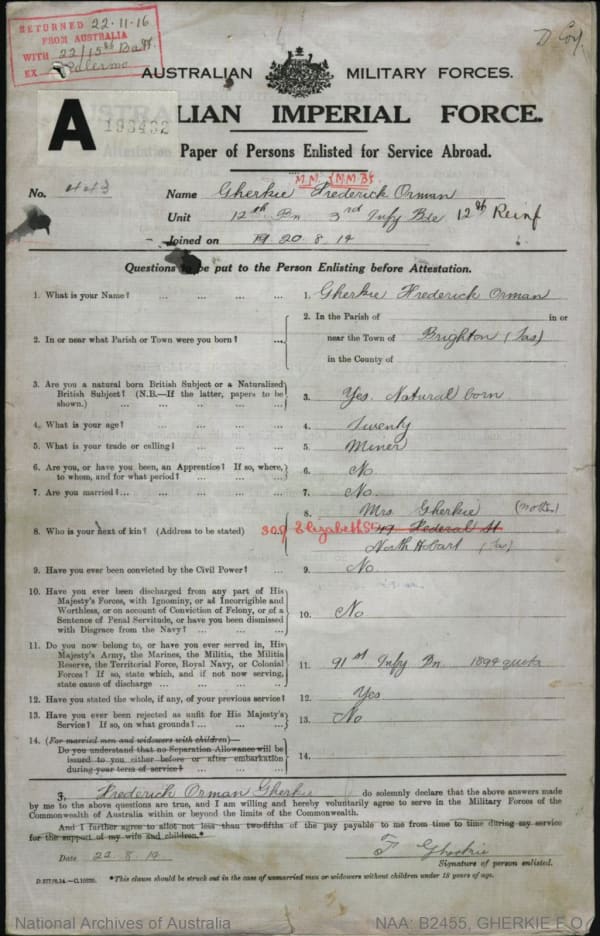 RETURNED 22.11.16
FROM AUSTRALIA
WITH 22/15th Batt.
EX Palermo
D Coy.
AUSTRALIAN MILITARY FORCES.
A 193432
LIAN IMPERIAL FORCE.
Attestation Paper of Persons Enlisted for Service Abroad.
M.M.
No. 443 Name Gherkie Frederick Orman
Unit 12th Bn 3rd Infy Bde 12th Reinf
Joined on 20.8.14
Questions to be put to the Person Enlisting before Attestation.
1. What is your Name? ... 1. Gherkie Frederick Orman
2. In or near what Parish or Town were you born? ... 2. In the Parish of in or
near the Town of Brighton (Tas)
in the County of
3. Are you a natural born British Subject or a Naturalized
British Subject? (N.B.—If the latter, papers to be
shown.) ... 3. Yes. Natural born
4. What is your age? ... 4. Twenty
5. What is your trade or calling? ... 5. Miner
6. Are you, or have you been, an Apprentice? If so, where,
to whom, and for what period? ... 6. No
7. Are you married? ... 7. No.
8. Who is your next of kin? (Address to be stated) 8. Mrs Gherkie (Mother)
309 Elizabeth St 49 Federal St
North Hobart (Tas)
9. Have you ever been convicted by the Civil Power? ... 9. No.
10. Have you ever been discharged from any part of His
Majesty's Forces, with Ignominy, or as Incorrigible and
Worthless, or on account of Conviction of Felony, or of a
Sentence of Penal Servitude, or have you been dismissed
with Disgrace from the Navy? ... 10. No
11. Do you now belong to, or have you ever served in, His
Majesty's Army, the Marines, the Militia, the Militia
Reserve, the Territorial Force, Royal Navy, or Colonial
Forces? If so, state which, and if not now serving,
state cause of discharge ... 11. 91st Infy Bn 1894 quota
12. Have you stated the whole, if any, of your previous service? 12. Yes
13. Have you ever been rejected as unfit for His Majesty's
Service? If so, on what grounds? ... 13. No
14. (For married men and widowers with children)—
Do you understand that no Separation Allowance will be
issued to you either before or after embarkation
during your term of service? ... 14.
I, Frederick Orman Gherkie do solemnly declare that the above answers made
by me to the above questions are true, and I am willing and hereby voluntarily agree to serve in the Military Forces of the
Commonwealth of Australia within or beyond the limits of the Commonwealth.
And I further agree to allot not less than two-fifths of the pay payable to me from time to time during my service
for the support of my wife and children.*
Date 22.8.14 F Gherkie
Signature of person enlisted.
*This clause should be struck out in the case of unmarried men or widowers without children under 18 years of age.
National Archives of Australia NAA: B2455, GHERKIE F O